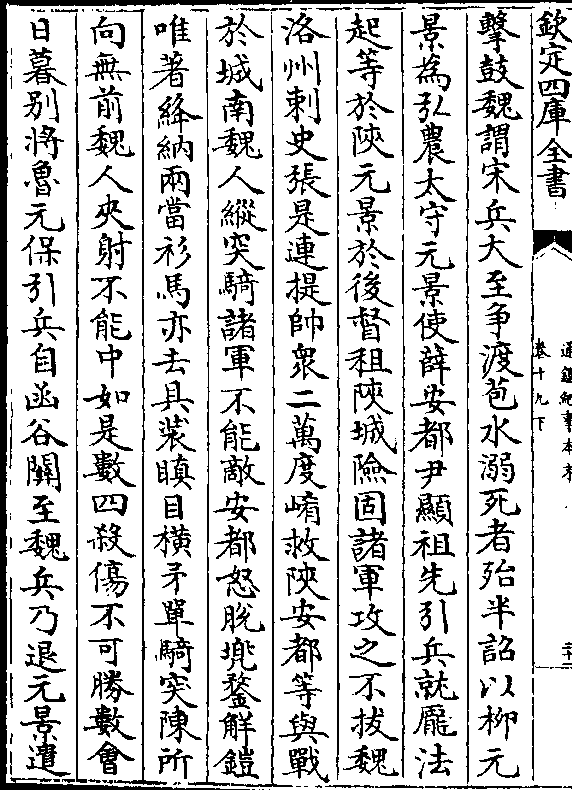 欽定四庫全書
通鑑紀事本末
卷十九下
擊鼓魏謂宋兵大至爭渡苞水溺死者殆半詔以柳元
景為弘農太守元景使薛安都尹顯祖先引兵就龎法
起等於陝元景於後督租陝城險固諸軍攻之不拔魏
洛州刺史張是連提帥衆二萬度崤救陝安都等與戰
於城南魏人縱突騎諸軍不能敵安都怒脫兠鍪解鎧
唯著絳納兩當衫馬亦去具裝瞋目橫矛單騎突陳所
向無前魏人夾射不能中如是數四殺傷不可勝數會
日暮别將魯元保引兵自函谷關至魏兵乃退元景遣